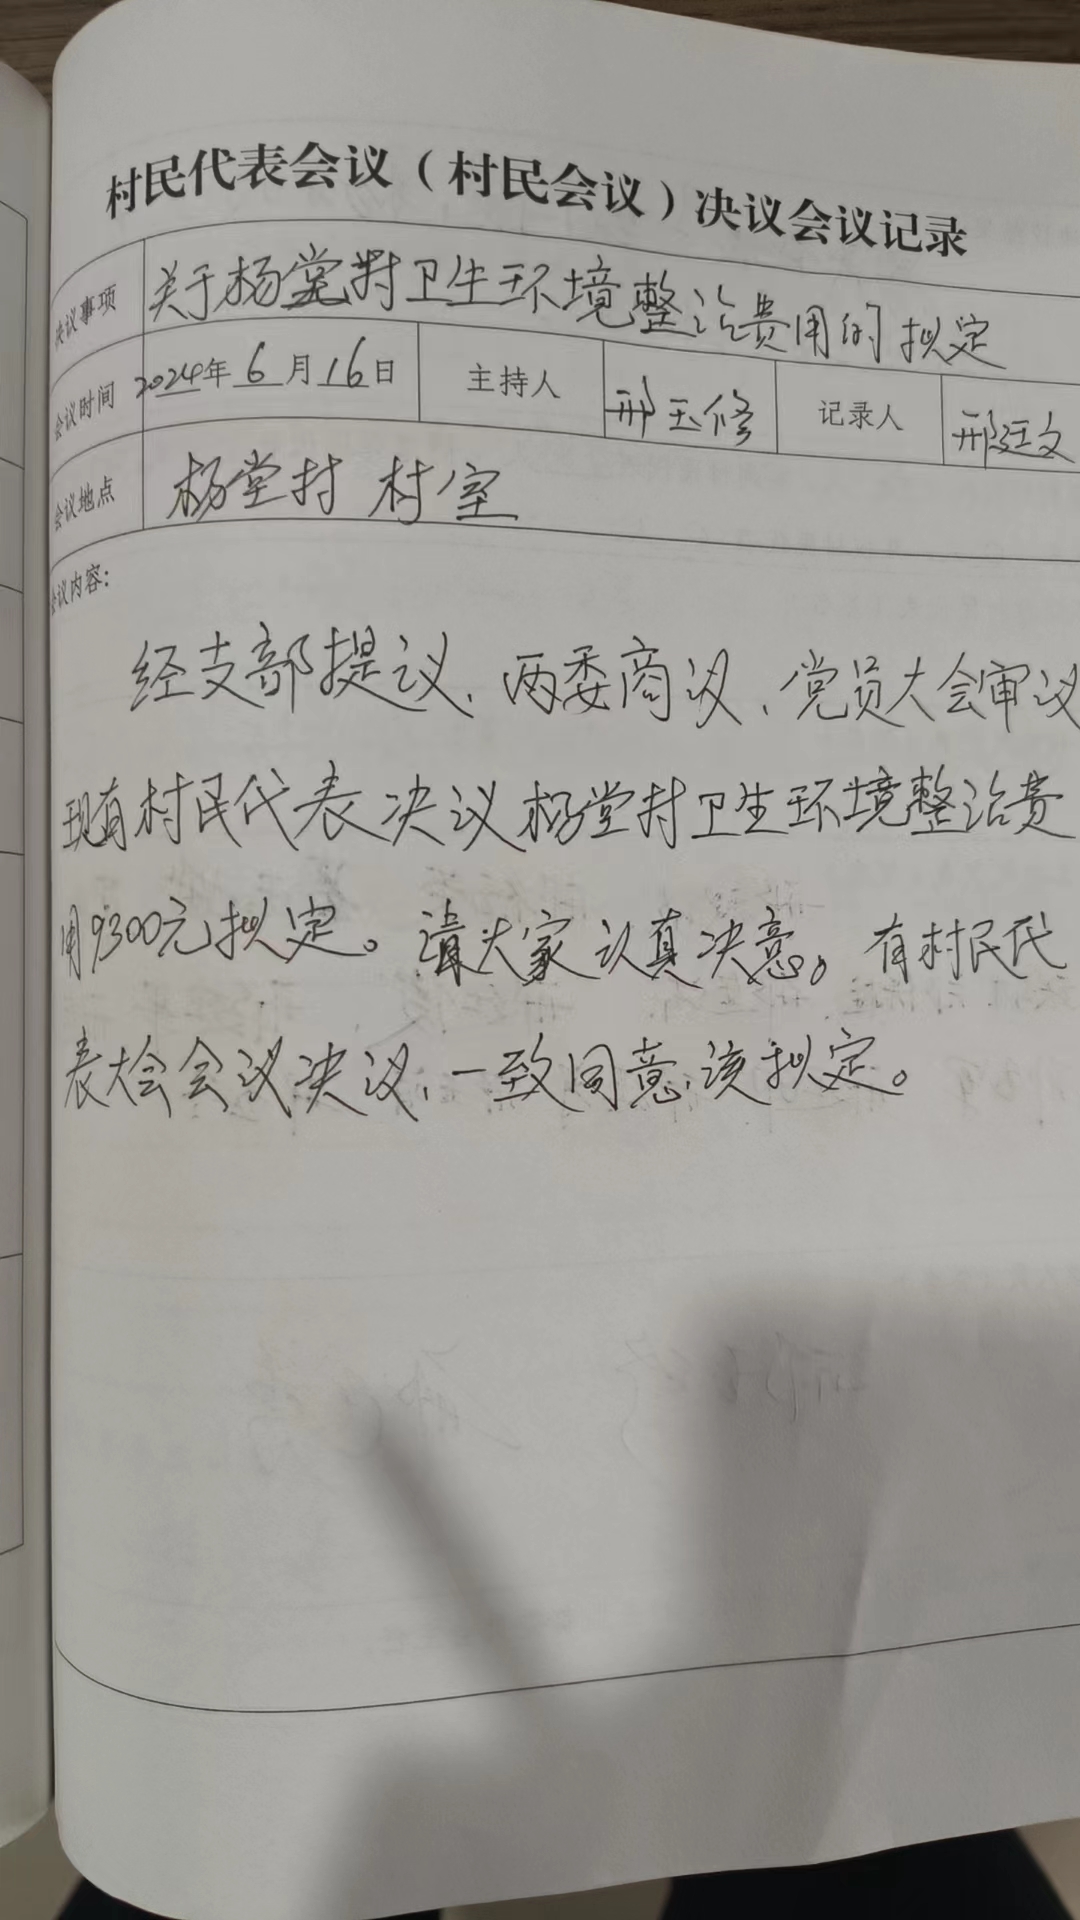 村民代表会议（村民会议）决议会议记录
决议事项 关于杨堂村卫生环境整治费用的拟定
会议时间 2024年6月16日 主持人 邢玉修 记录人 邢廷文
会议地点 杨堂村 村室
会议内容：
经支部提议、两委商议、党员大会审议
现有村民代表决议杨堂村卫生环境整治费
用9300元拟定。请大家认真决意。有村民代
表大会会议决议，一致同意该拟定。